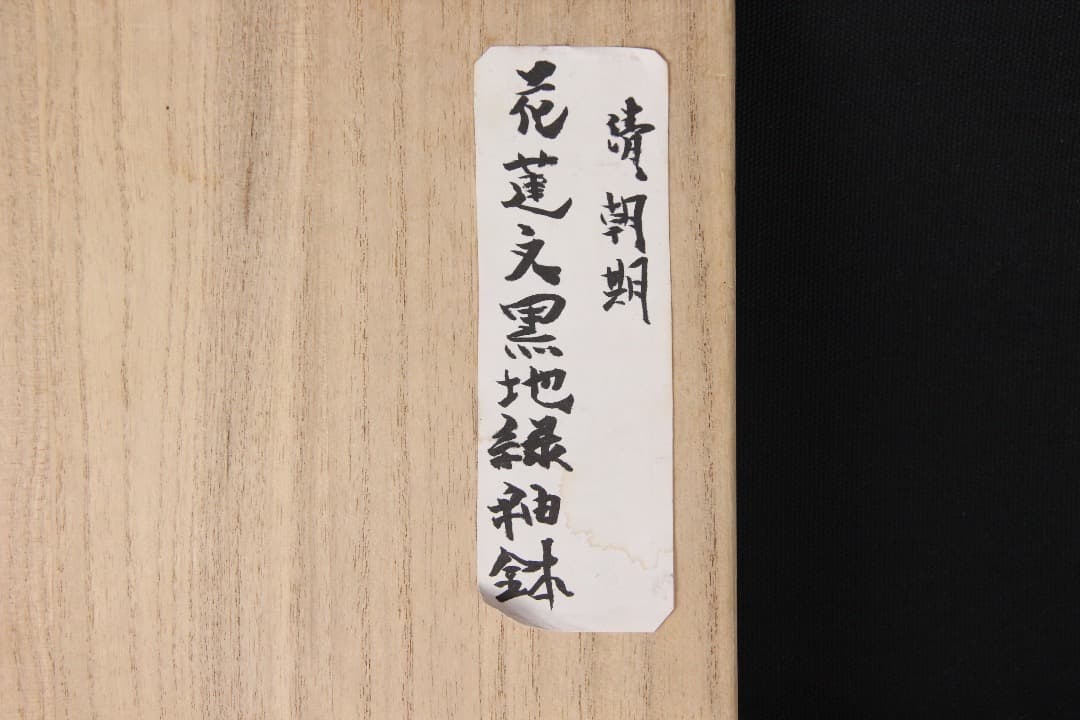 清朝期
花蓮文黒地緑釉鉢